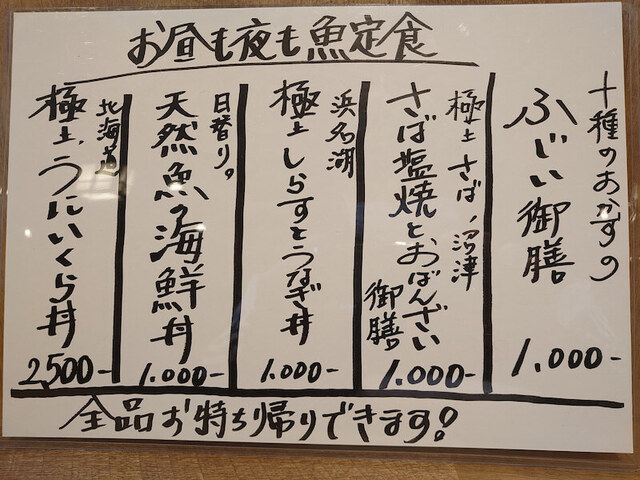 お昼も夜も魚定食
十種のおかずの
ふじい御膳
1.000-
極上さば、沼津
さば塩焼とおばんざい
御膳
1.000-
浜名湖
極上しらすとうなぎ丼
1.000-
日替り。
天然魚の海鮮丼
1.000-
北海道
極上、うにいくら丼
2,500-
全品お持ち帰りできます!